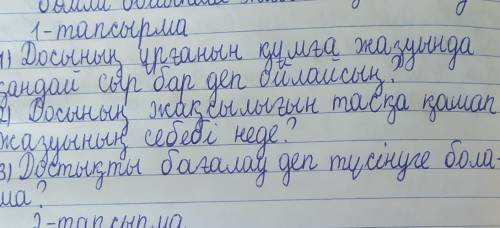 1-тапсырма
1) Досының ұрғанын құмға жазуында
қандай сыр бар деп ойлайсың?
2) Досының жақсылығын тасқа қашап
жазуының себебі неде?
3) Достықты бағалау деп түсінуге бола-
ма?
2-тапсырма